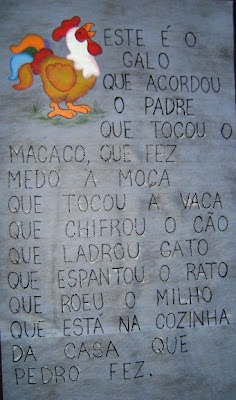 ESTE É O
GALO
QUE ACORDOU
O PADRE
QUE TOCOU O
MACACO, QUE FEZ
MEDO A MOÇA
QUE TOCOU A VACA
QUE CHIFROU O CÃO
QUE LADROU GATO
QUE ESPANTOU O RATO
QUE ROEU O MILHO
QUE ESTÁ NA COZINHA
DA CASA QUE
PEDRO FEZ.